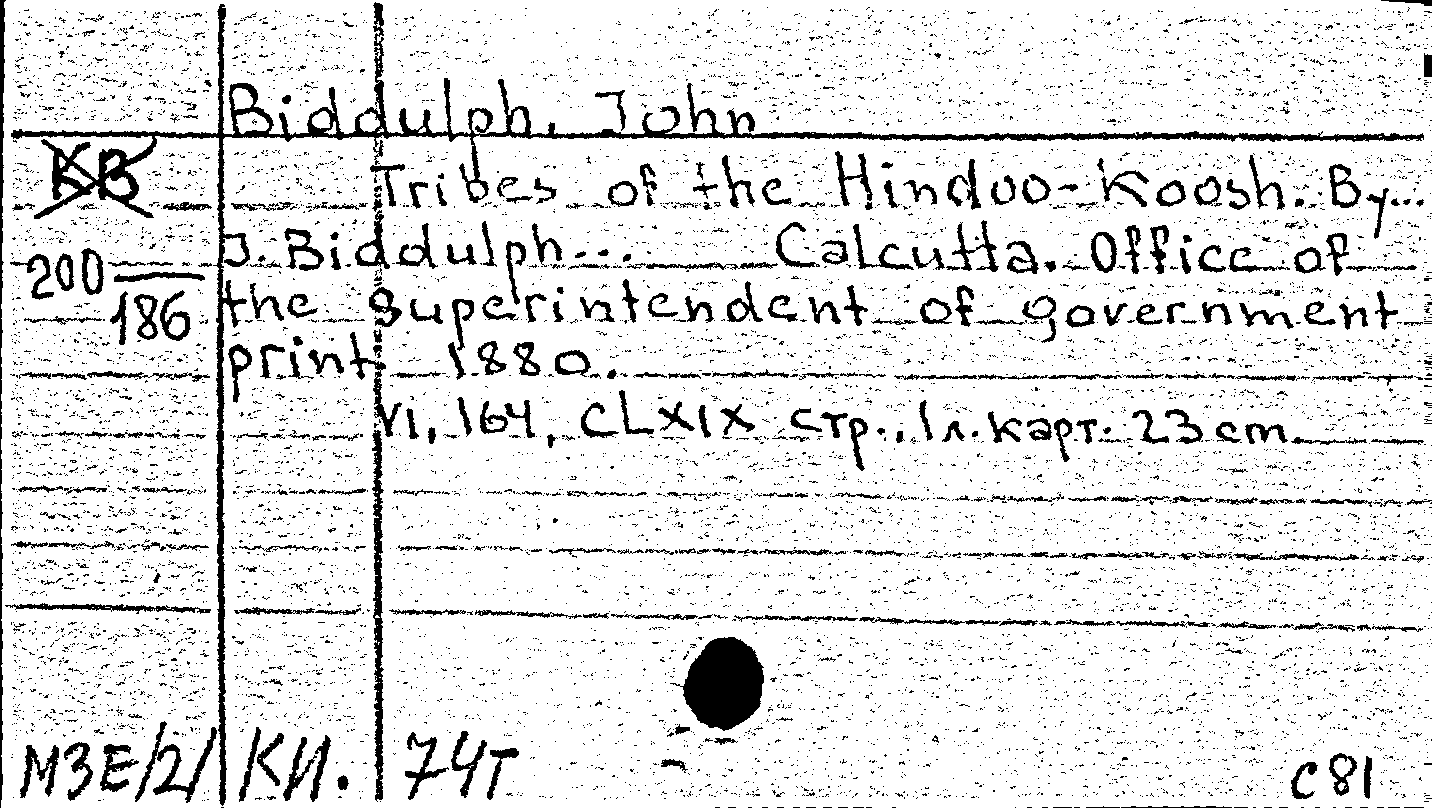 Biddulph, John
КВ
Tribes of the Hindoo-Koosh. By...
J. Biddulph... Calcutta. Office of
200
186
the superintendent of government
print 1880.
VI, 164, CLXIX стр., 1 л. карт. 23 cm.
МЗЕ/2/ КИ. 74т
с 81